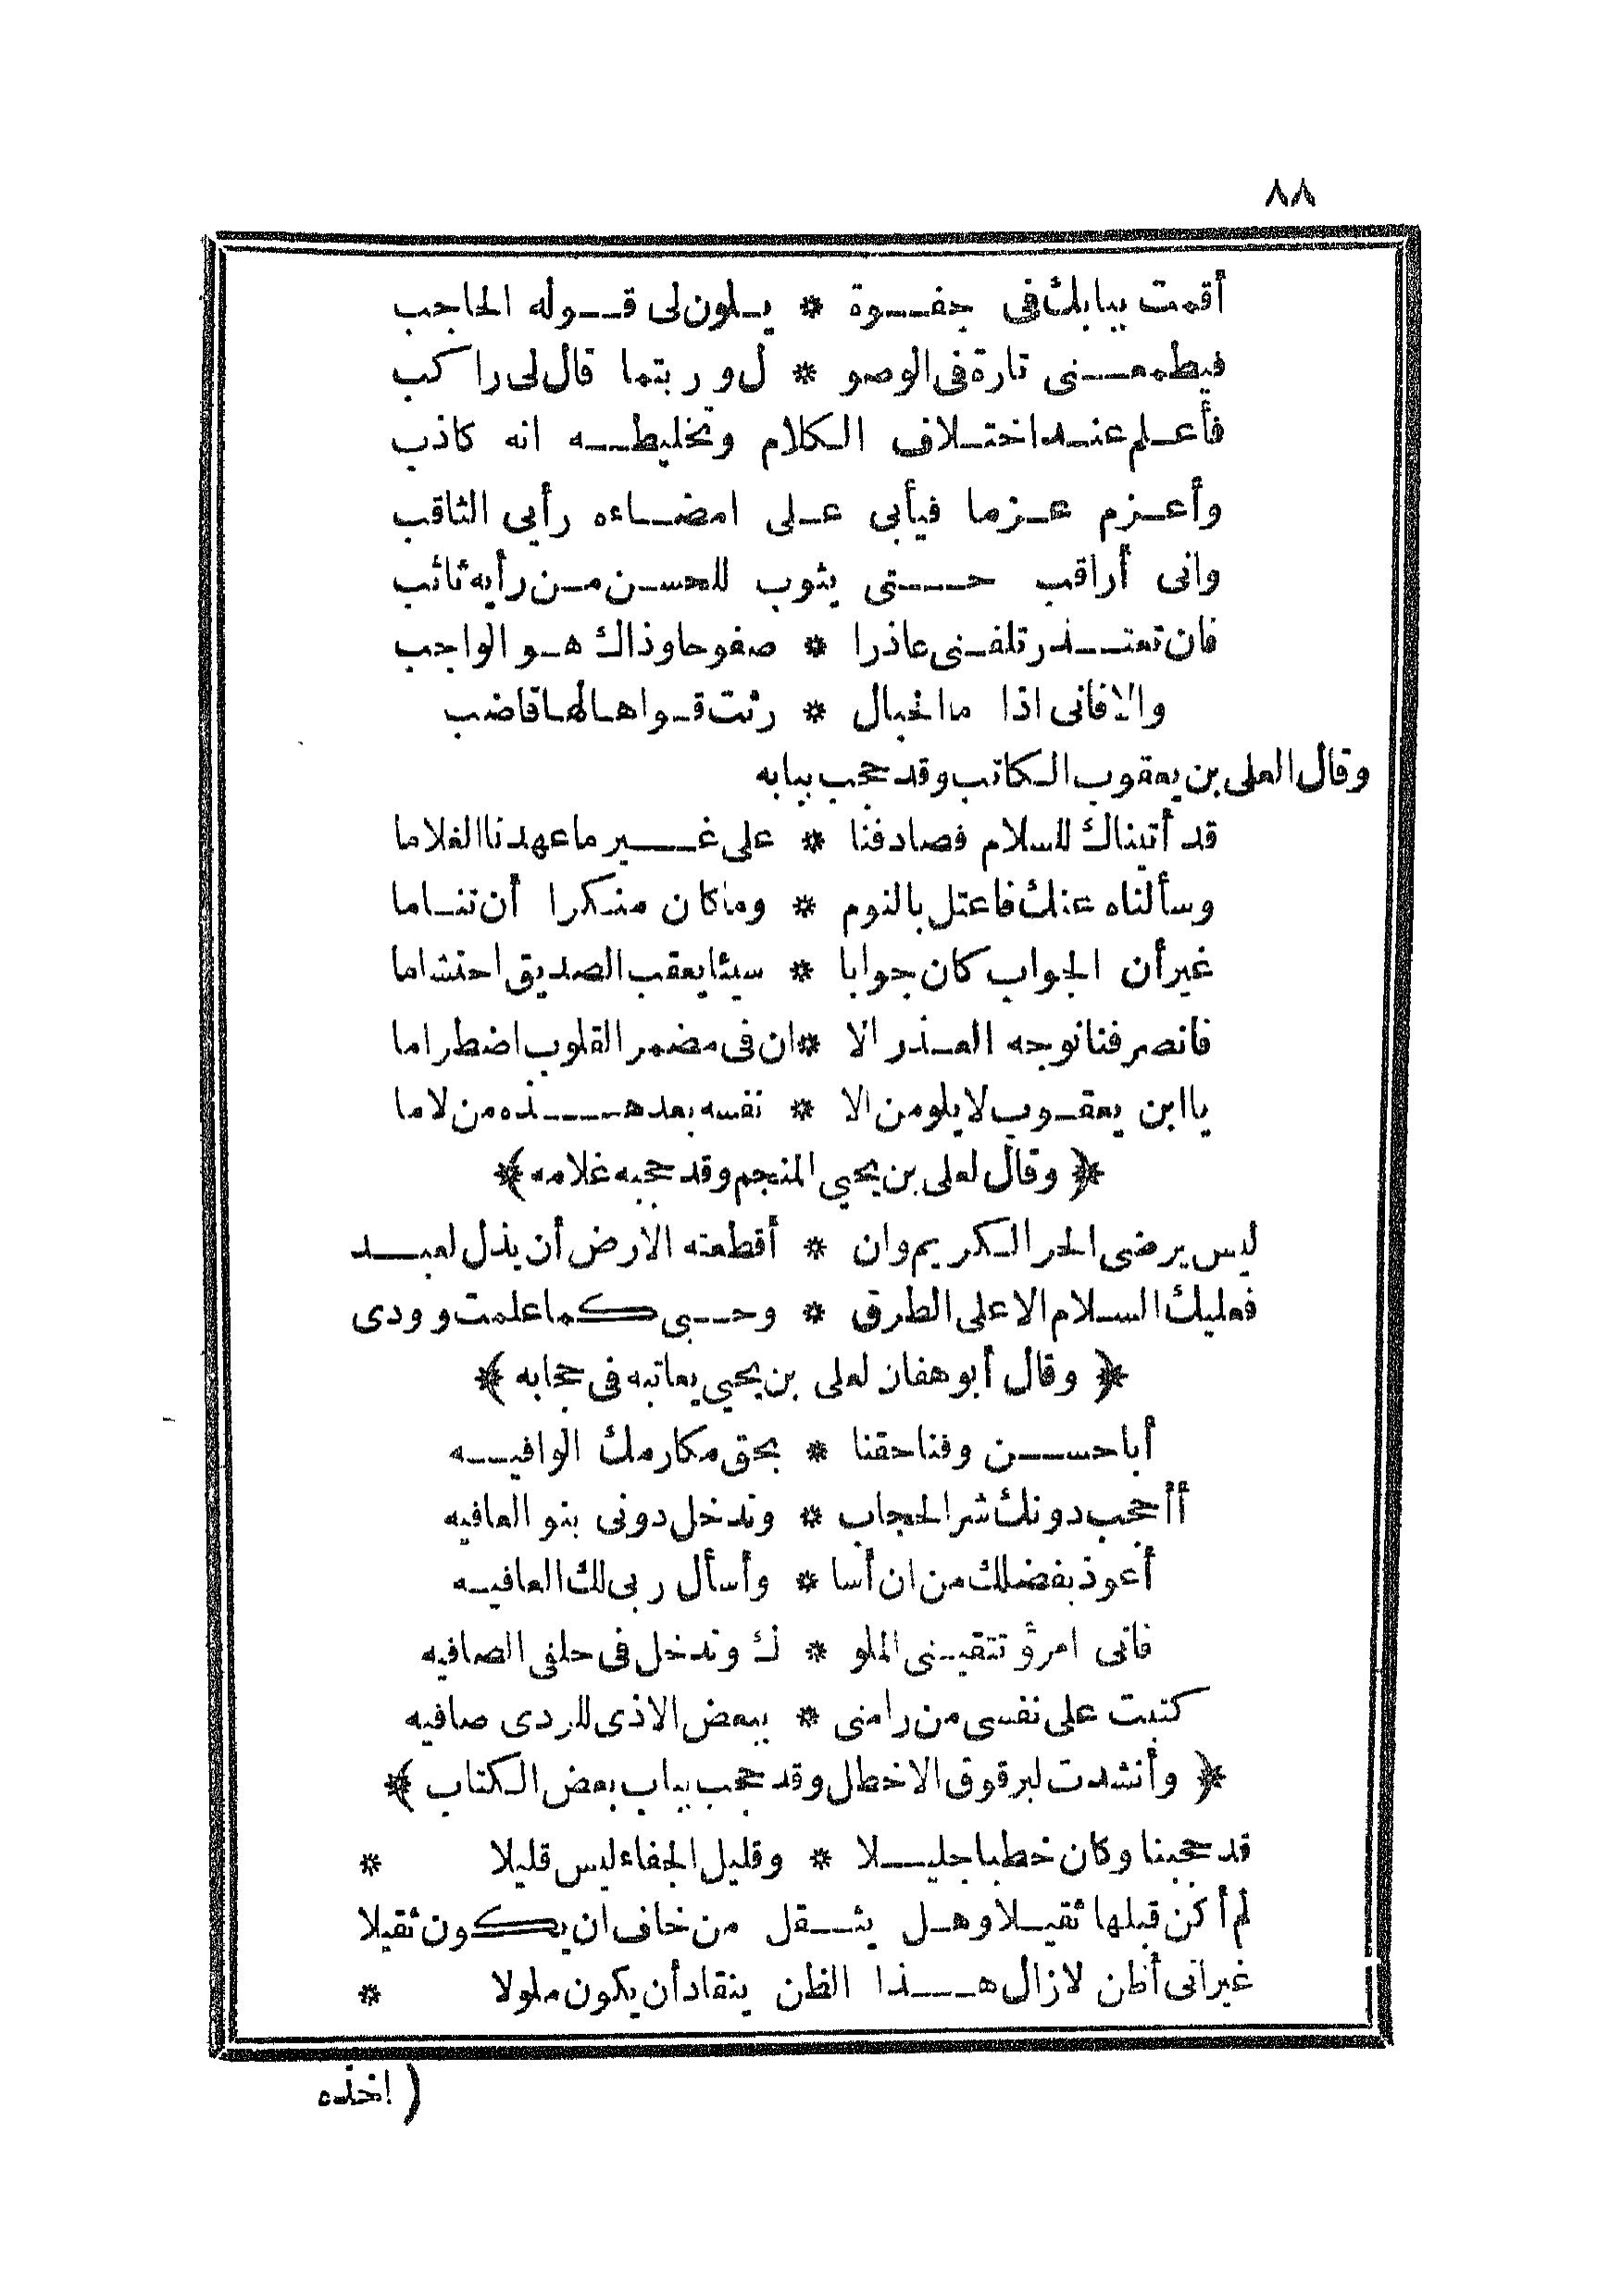 ٨٨
أقمت ببابك فى جفوة * يلون لى قوله الحاجب
فيطمعنى تارة فى الوصو * ل وربتما قال لى راكب
فأعلم عند اختلاف الكلام وتخليطه انه كاذب
وأعزم عزما فيأبى على امضاءه رأيى الثاقب
وانى أراقب حتى يثوب للحسن من رأيه ثائب
فان تعتذر تلفنى عاذرا * صفوحا وذاك هو الواجب
والا فانى اذا ما الحبال * رثت قواها لها قاضب
وقال العلى بن يعقوب الكاتب وقد حجب ببابه
قد أتيناك للسلام فصادفنا * على غير ما عهدنا الغلاما
وسألناه عنك فاعتل بالنوم * وما كان منكرا أن تناما
غير أن الجواب كان جوابا * سيئا يعقب الصديق احتشاما
فانصرفنا نوجه العذر الا * ان فى مضمر القلوب اضطراما
يا ابن يعقوب لا يلومن الا * نفسه بعد هذه من لاما
﴿ وقال لعلى بن يحيى المنجم وقد حجبه غلامه ﴾
ليس يرضى الحر الكريم وان * أقطعته الارض أن يذل لعبد
فعليك السلام الا على الطرق * وحبى كما علمت وودى
﴿ وقال أبو هفان لعلى بن يحيى يعاتبه فى حجابه ﴾
أبا حسن وفنا حقنا * بحق مكارمك الوافيه
أأحجب دونك شر الحجاب * وتدخل دونى بنو العافيه
أعوذ بفضلك من ان أسا * وأسأل ربى لك العافيه
فانى امرؤ تتقينى الملو * ك وتدخل فى حلفى الصافيه
كتبت على نفسى من رامنى * ببعض الاذى للردى صافيه
﴿ وأنشدت لبرقوق الاخطل وقد حجب بباب بعض الكتاب ﴾
قد حجبنا وكان خطبا جليلا * وقليل الجفاء ليس قليلا *
لم أكن قبلها ثقيلا وهل يثقل من خاف ان يكون ثقيلا
غير انى أظن لازال هذا الظن ينقاد أن يكون ملولا *
( اخذه